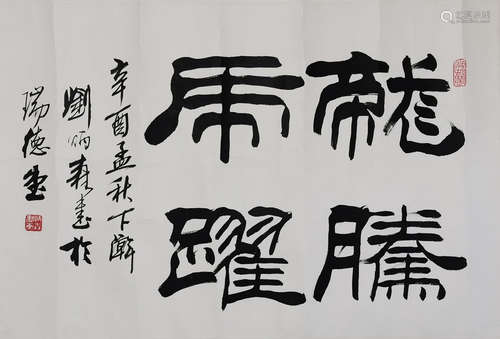 龍騰
虎躍
辛酉孟秋下澣
劉炳森書於
瑞德堂